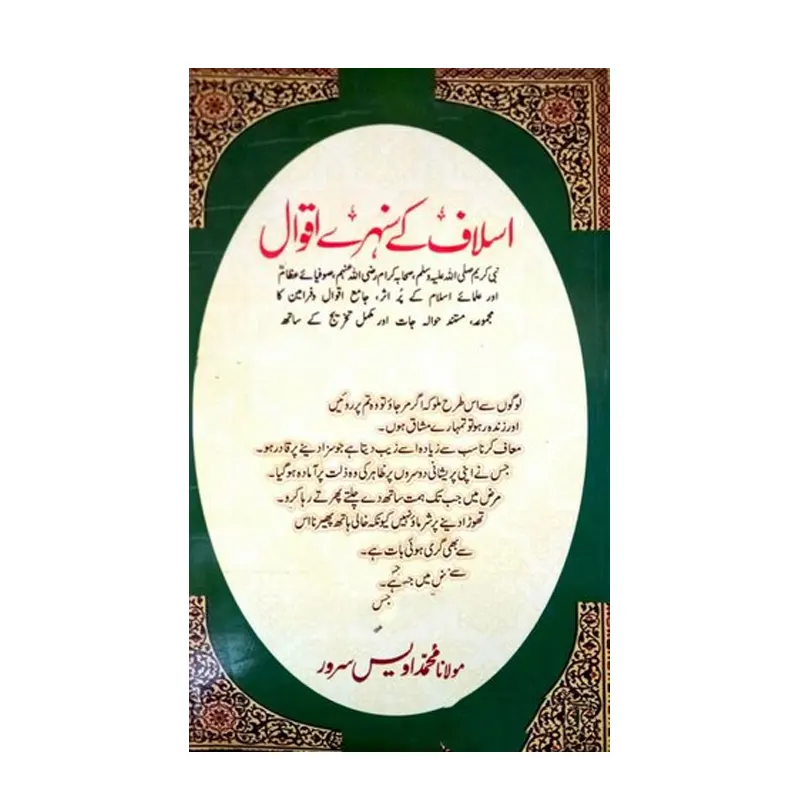 اسلاف کے سنہرے اقوال
نبی کریم صلی اللہ علیہ وسلم، صحابہ کرام رضی اللہ عنہم، صوفیائے عظامؒ
اور علمائے اسلام کے پُر اثر، جامع اقوال و فرامین کا
مجموعہ، مستند حوالہ جات اور مکمل تخریج کے ساتھ
لوگوں سے اس طرح ملو کہ اگر مر جاؤ تو وہ تم پر روئیں
اور زندہ رہو تو تمہارے مشتاق ہوں۔
معاف کرنا سب سے زیادہ اسے زیب دیتا ہے جو سزا دینے پر قادر ہو۔
جس نے اپنی پریشانی دوسروں پر ظاہر کی وہ ذلت پر آمادہ ہو گیا۔
مرض میں جب تک ہمت ساتھ دے چلتے پھرتے رہا کرو۔
تھوڑا دینے پر شرماؤ نہیں کیونکہ خالی ہاتھ پھیرنا اس
سے بھی گری ہوئی بات ہے۔
سے میں ہے۔
جس
مولانا محمد اویس سرور